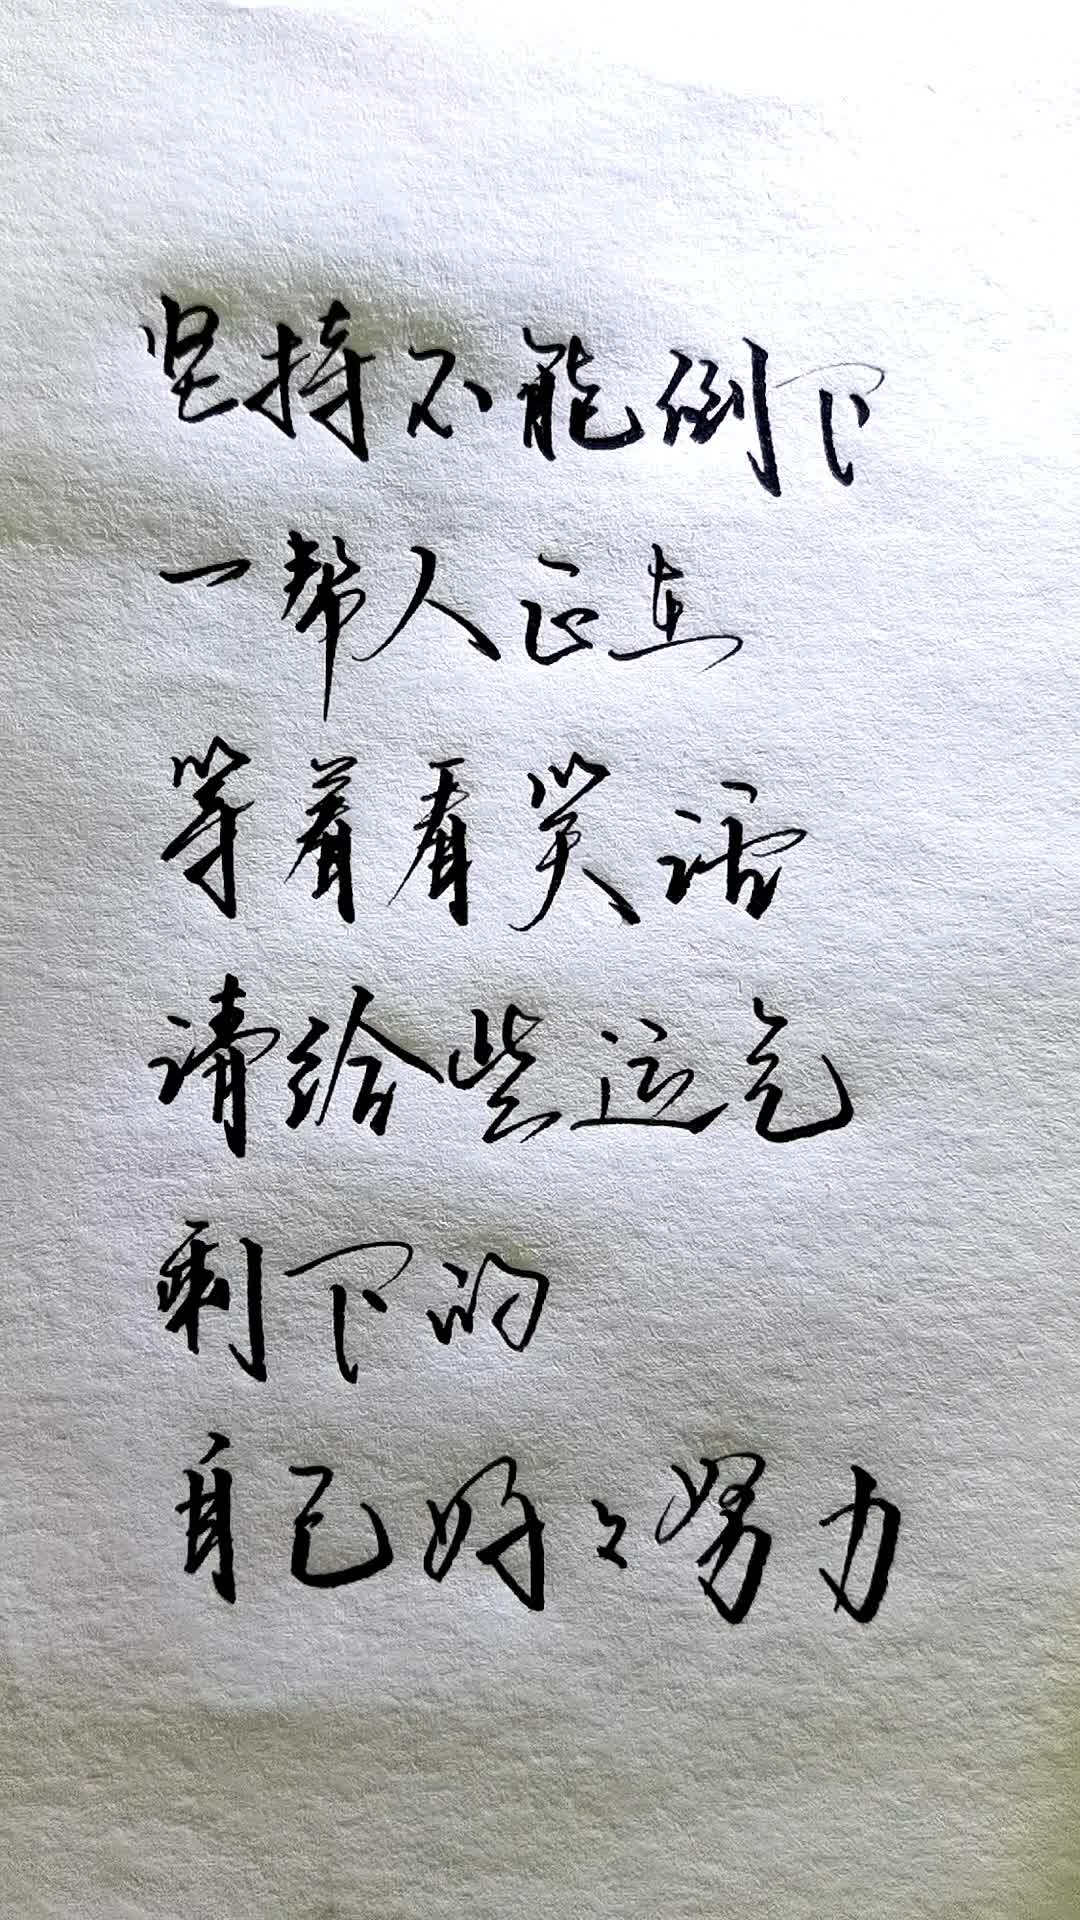 坚持不能倒下
一帮人正在
等着看笑话
请给些运气
剩下的
自己好々努力